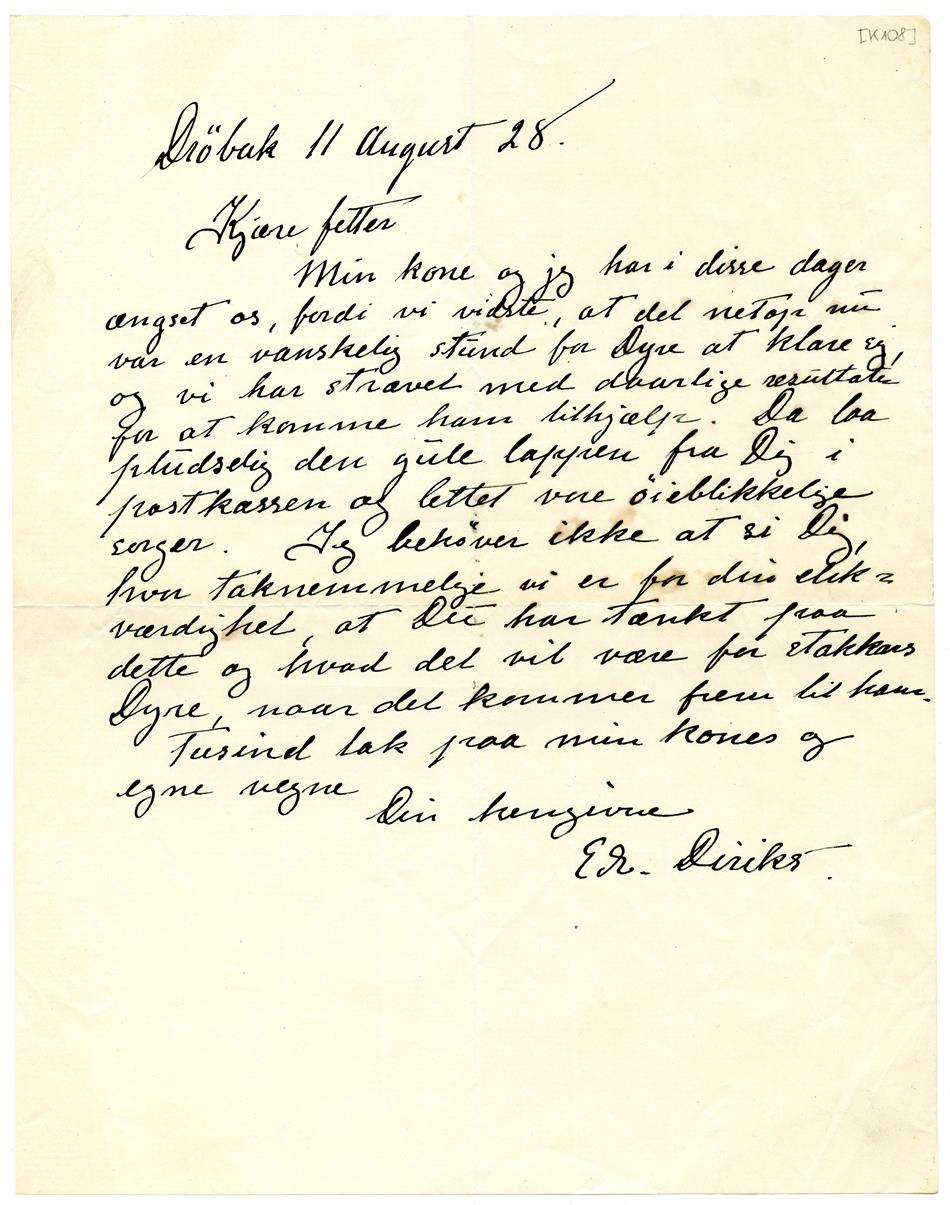 [K108]
Dröbak 11 August 28.
Kjære fetter
Min kone og jeg har i disse dager
ængstet os, fordi vi vidste, at det netop nu
var en vanskelig stund for Dyre at klare sig,
og vi har strævet med daarlige resultater
for at komme ham tilhjælp. Da laa
pludselig den gule lappen fra Dig i
postkassen og lettet vore öieblikkelige
sorger. Jeg behöver ikke at si Dig,
hvor taknemmelige vi er for din elsk=
værdighet, at Du har tænkt paa
dette og hvad det vil være for stakkars
Dyre, naar det kommer frem til ham.
Tusind tak paa min kones og
egne vegne
Din hengivne
Edv. Diriks.